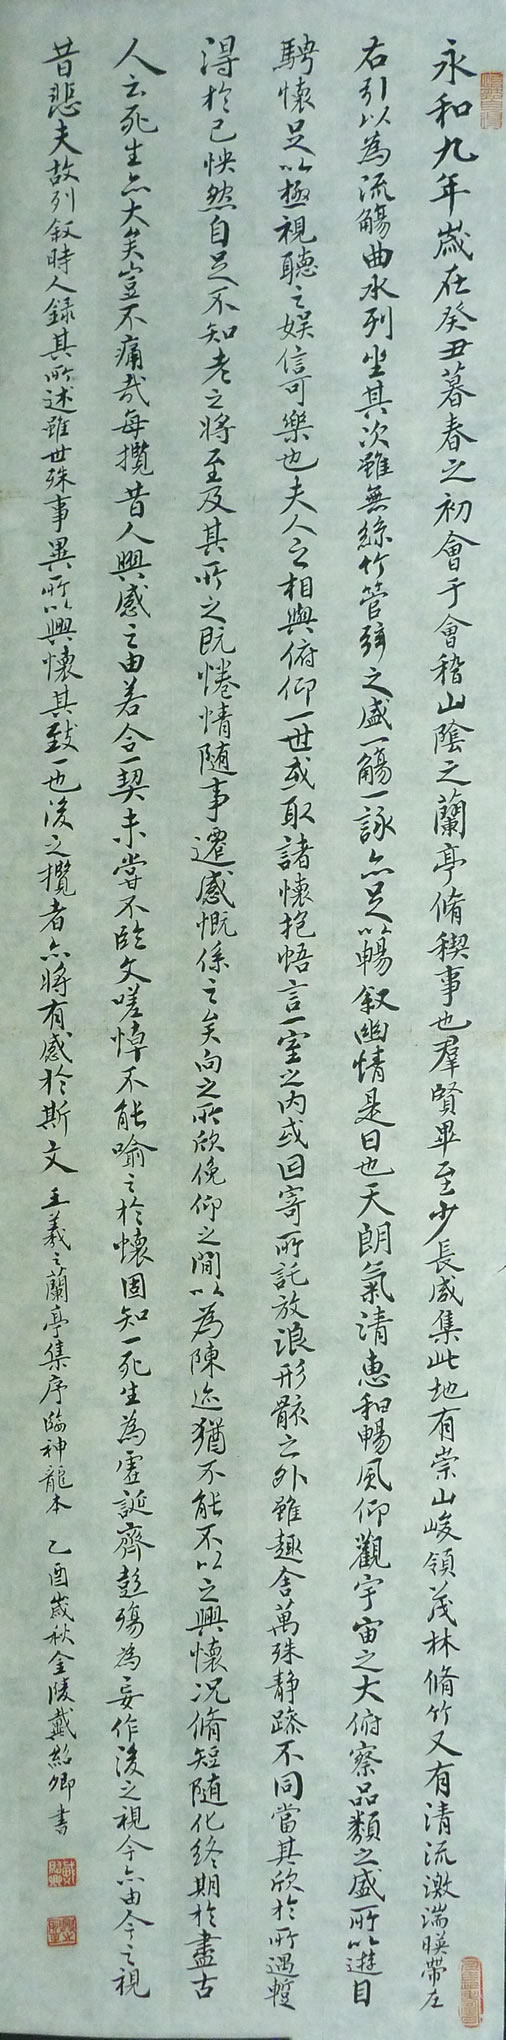 永和九年歲在癸丑暮春之初會于會稽山陰之蘭亭脩稧事也羣賢畢至少長咸集此地有崇山峻領茂林脩竹又有清流激湍暎帶左
右引以為流觴曲水列坐其次雖無絲竹管弦之盛一觴一詠亦足以暢叙幽情是日也天朗氣清惠和暢風仰觀宇宙之大俯察品類之盛所以遊目
騁懷足以極視聽之娛信可樂也夫人之相與俯仰一世或取諸懷抱悟言一室之內或因寄所託放浪形骸之外雖趣舍萬殊靜躁不同當其欣於所遇蹔
得於己怏然自足不知老之將至及其所之既惓情隨事遷感慨係之矣向之所欣俛仰之閒以為陳迹猶不能不以之興懷況脩短隨化終期於盡古
人云死生亦大矣豈不痛哉每攬昔人興感之由若合一契未甞不臨文嗟悼不能喻之於懷固知一死生為虛誕齊彭殤為妄作後之視今亦由今之視
昔悲夫故列叙時人錄其所述雖世殊事異所以興懷其致一也後之攬者亦將有感於斯文 王羲之蘭亭集序臨神龍本 乙酉歲秋金陵戴紹卿書